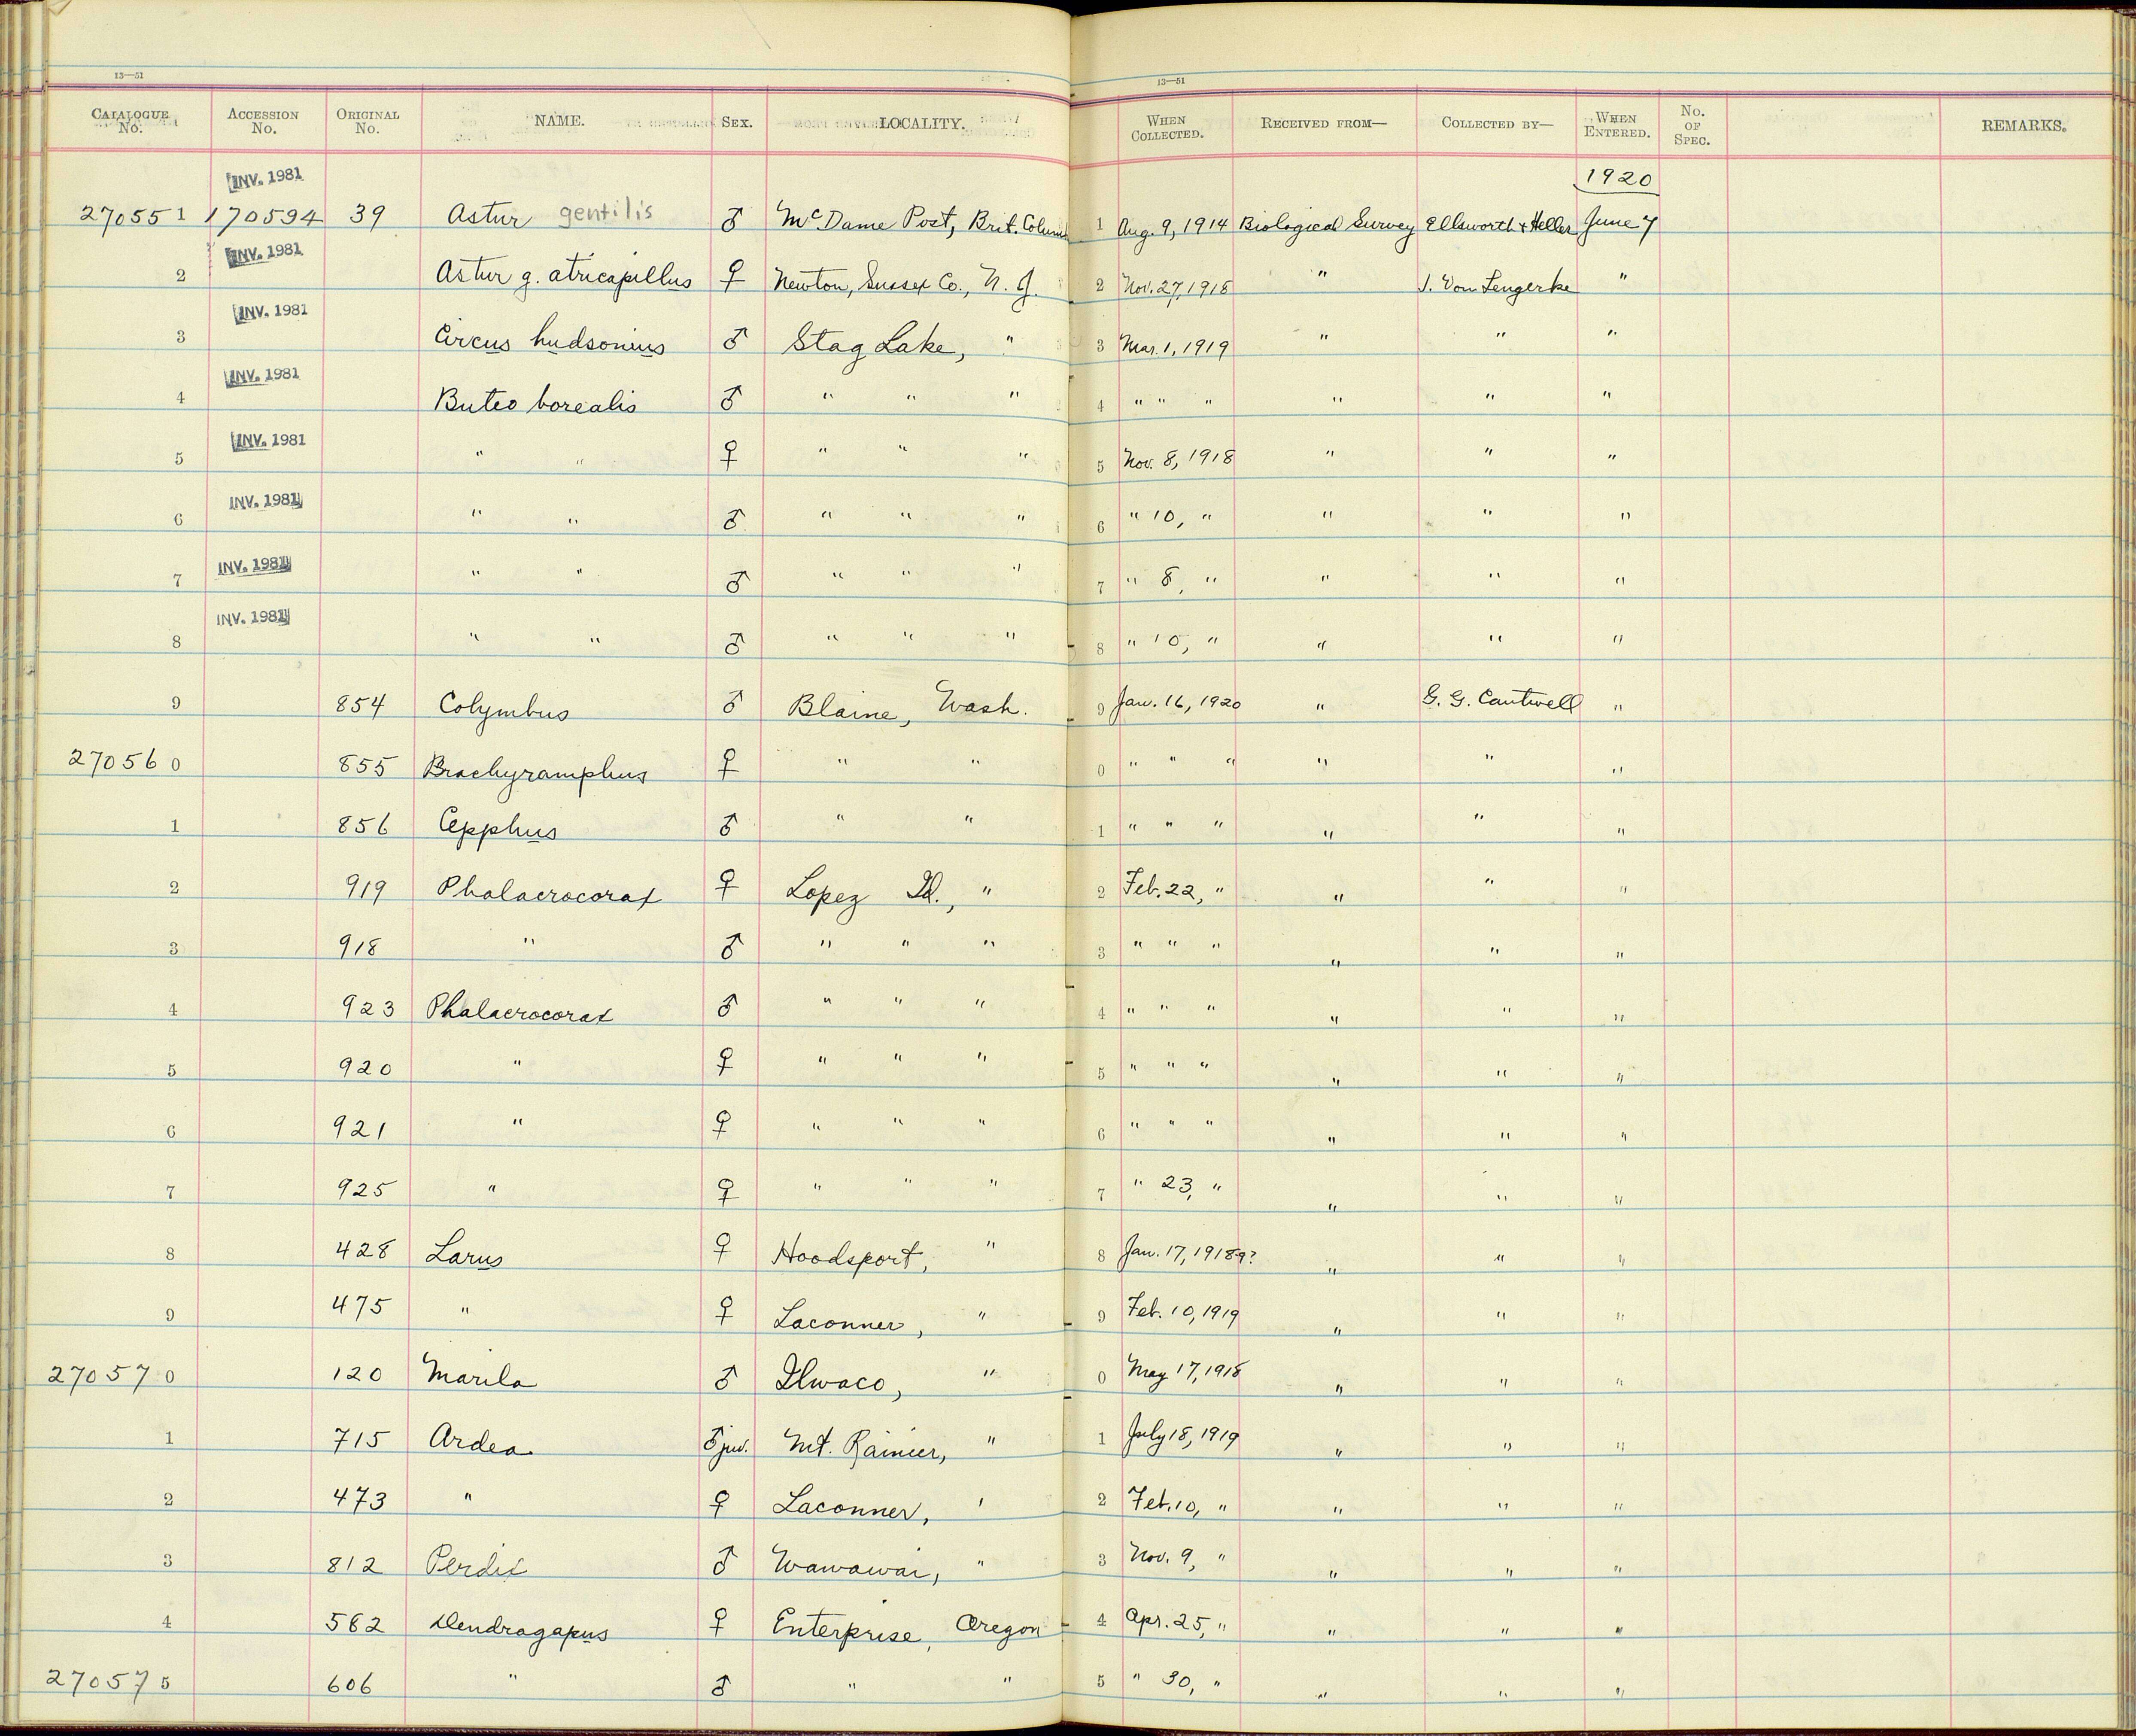 13—51
13—51
CATALOGUE No. ACCESSION No. ORIGINAL No. NAME. SEX. LOCALITY. WHEN COLLECTED. RECEIVED FROM— COLLECTED BY— WHEN ENTERED. No. OF SPEC. REMARKS.
INV. 1981 1920
270551 170594 39 Astur gentilis ♂ McDame Post, Brit. Colum 1 Aug. 9, 1914 Biological Survey Ellsworth & Heller June 7
INV. 1981
2 Astur g. atricapillus ♀ Newton, Sussex Co., N. J. 2 Nov. 27, 1918 " J. Von Lengerke "
INV. 1981
3 Circus hudsonius ♂ Stag Lake, " 3 Mar. 1, 1919 " " "
INV. 1981
4 Buteo borealis ♂ " " " 4 " " " " " "
INV. 1981
5 " " ♀ " " " 5 Nov. 8, 1918 " " "
INV. 1981
6 " " ♂ " " " 6 " 10, " " " "
INV. 1981
7 " " ♂ " " " 7 " 8, " " " "
INV. 1981
8 " " ♂ " " " 8 " 10, " " " "
9 854 Colymbus ♂ Blaine, Wash. 9 Jan. 16, 1920 " G. G. Cantwell "
270560 855 Brachyramphus ♀ " " 0 " " " " " "
1 856 Cepphus ♂ " " 1 " " " " " "
2 919 Phalacrocorax ♀ Lopez Id., " 2 Feb. 22, " " " "
3 918 " ♂ " " " 3 " " " " " "
4 923 Phalacrocorax ♂ " " " 4 " " " " " "
5 920 " ♀ " " " 5 " " " " " "
6 921 " ♀ " " " 6 " " " " " "
7 925 " ♀ " " " 7 " 23, " " " "
8 428 Larus ♀ Hoodsport, " 8 Jan. 17, 19189? " " "
9 475 " ♀ Laconner, " 9 Feb. 10, 1919 " " "
270570 120 Marila ♂ Ilwaco, " 0 May 17, 1918 " " "
1 715 Ardea ♂ juv. Mt. Rainier, " 1 July 18, 1919 " " "
2 473 " ♀ Laconner, ' 2 Feb. 10, " " " "
3 812 Perdix ♂ Wawawai, " 3 Nov. 9, " " " "
4 582 Dendragapus ♀ Enterprise, Oregon 4 Apr. 25, " " " "
270575 606 " ♂ " " 5 " 30, " " " "